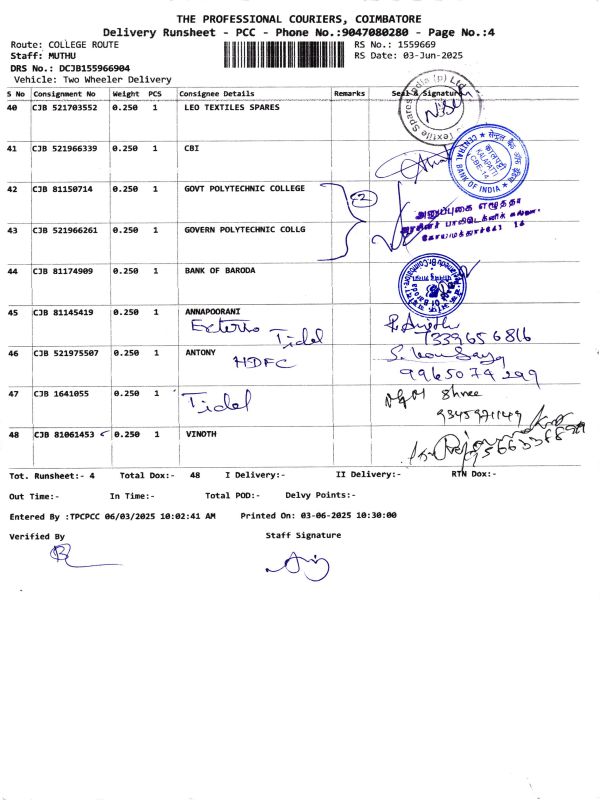 THE PROFESSIONAL COURIERS, COIMBATORE
Delivery Runsheet - PCC - Phone No.:9047080280 - Page No.:4
Route: COLLEGE ROUTE RS No.: 1559669
Staff: MUTHU RS Date: 03-Jun-2025
DRS No.: DCJB155966904
Vehicle: Two Wheeler Delivery
S No Consignment No Weight PCS Consignee Details Remarks Seal & Signature
40 CJB 521703552 0.250 1 LEO TEXTILES SPARES
41 CJB 521966339 0.250 1 CBI
CENTRAL BANK OF INDIA
KALAPATTI
CBE-14
42 CJB 81150714 0.250 1 GOVT POLYTECHNIC COLLEGE
2
43 CJB 521966261 0.250 1 GOVERN POLYTECHNIC COLLG
44 CJB 81174909 0.250 1 BANK OF BARODA
45 CJB 81145419 0.250 1 ANNAPOORANI
Tidel
7339656816
46 CJB 521975507 0.250 1 ANTONY
HDFC
9965074299
47 CJB 1641055 0.250 1 Tidel
Shree
9345971149
48 CJB 81061453 0.250 1 VINOTH
Tot. Runsheet:- 4 Total Dox:- 48 I Delivery:- II Delivery:- RTN Dox:-
Out Time:- In Time:- Total POD:- Delvy Points:-
Entered By :TPCPCC 06/03/2025 10:02:41 AM Printed On: 03-06-2025 10:30:00
Verified By Staff Signature